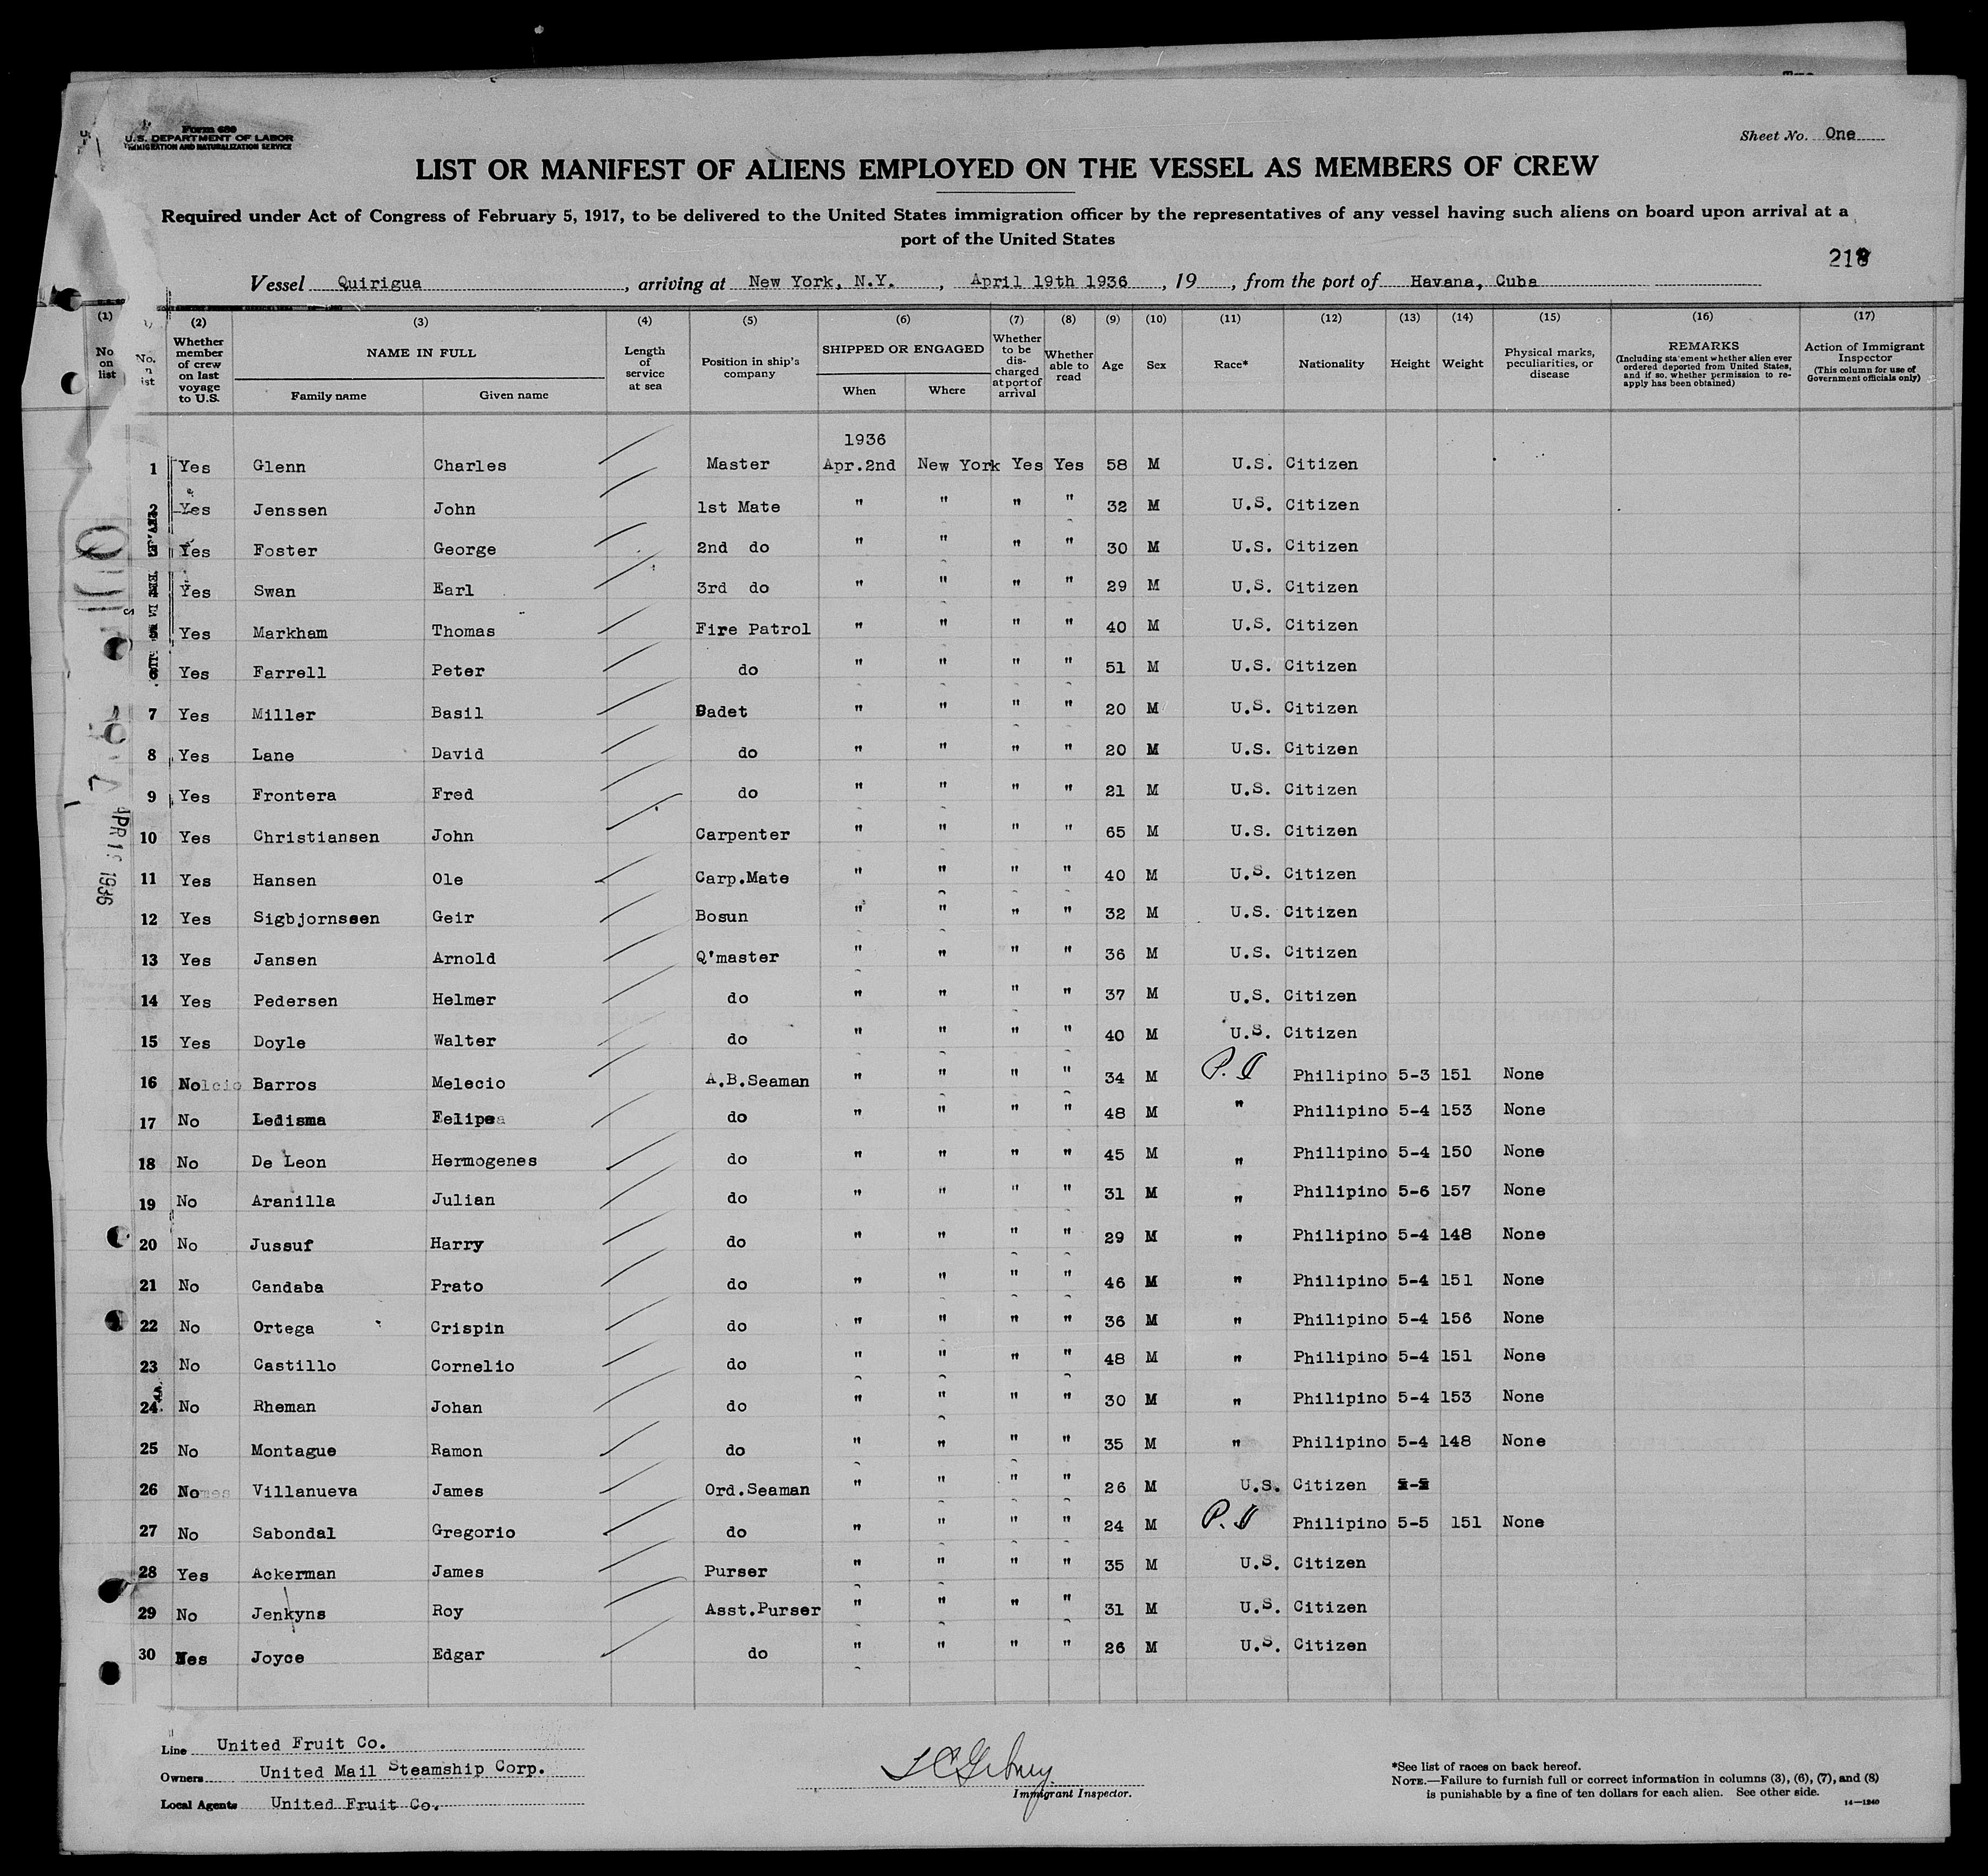 Form 680
U.S. DEPARTMENT OF LABOR
IMMIGRATION AND NATURALIZATION SERVICE
Sheet No. One
LIST OR MANIFEST OF ALIENS EMPLOYED ON THE VESSEL AS MEMBERS OF CREW
Required under Act of Congress of February 5, 1917, to be delivered to the United States immigration officer by the representatives of any vessel having such aliens on board upon arrival at a
port of the United States
218
Vessel Quirigua, arriving at New York, N.Y., April 19th 1936, 19, from the port of Havana, Cuba
(1) (2) (3) (4) (5) (6) (7) (8) (9) (10) (11) (12) (13) (14) (15) (16) (17)
No on list
Whether member of crew on last voyage to U.S.
NAME IN FULL
Family name Given name
Length of service at sea
Position in ship's company
SHIPPED OR ENGAGED
When Where
Whether to be discharged at port of arrival
Whether able to read
Age
Sex
Race*
Nationality
Height
Weight
Physical marks, peculiarities, or disease
REMARKS
(Including statement whether alien ever ordered deported from United States, and if so, whether permission to re-apply has been obtained)
Action of Immigrant Inspector
(This column for use of Government officials only)
1936
1 Yes Glenn Charles Master Apr.2nd New York Yes Yes 58 M U.S. Citizen
2 Yes Jenssen John 1st Mate " " " " 32 M U.S. Citizen
3 Yes Foster George 2nd do " " " " 30 M U.S. Citizen
4 Yes Swan Earl 3rd do " " " " 29 M U.S. Citizen
5 Yes Markham Thomas Fire Patrol " " " " 40 M U.S. Citizen
6 Yes Farrell Peter do " " " " 51 M U.S. Citizen
7 Yes Miller Basil Cadet " " " " 20 M U.S. Citizen
8 Yes Lane David do " " " " 20 M U.S. Citizen
9 Yes Frontera Fred do " " " " 21 M U.S. Citizen
10 Yes Christiansen John Carpenter " " " " 65 M U.S. Citizen
11 Yes Hansen Ole Carp.Mate " " " " 40 M U.S. Citizen
12 Yes Sigbjornssen Geir Bosun " " " " 32 M U.S. Citizen
13 Yes Jansen Arnold Q'master " " " " 36 M U.S. Citizen
14 Yes Pedersen Helmer do " " " " 37 M U.S. Citizen
15 Yes Doyle Walter do " " " " 40 M U.S. Citizen
16 No Barros Melecio A.B.Seaman " " " " 34 M P.I Philipino 5-3 151 None
17 No Ledisma Felipe do " " " " 48 M " Philipino 5-4 153 None
18 No De Leon Hermogenes do " " " " 45 M " Philipino 5-4 150 None
19 No Aranilla Julian do " " " " 31 M " Philipino 5-6 157 None
20 No Jussuf Harry do " " " " 29 M " Philipino 5-4 148 None
21 No Candaba Prato do " " " " 46 M " Philipino 5-4 151 None
22 No Ortega Crispin do " " " " 36 M " Philipino 5-4 156 None
23 No Castillo Cornelio do " " " " 48 M " Philipino 5-4 151 None
24 No Rheman Johan do " " " " 30 M " Philipino 5-4 153 None
25 No Montague Ramon do " " " " 35 M " Philipino 5-4 148 None
26 No Villanueva James Ord.Seaman " " " " 26 M U.S. Citizen
27 No Sabondal Gregorio do " " " " 24 M P.I Philipino 5-5 151 None
28 Yes Ackerman James Purser " " " " 35 M U.S. Citizen
29 No Jenkyns Roy Asst.Purser " " " " 31 M U.S. Citizen
30 Yes Joyce Edgar do " " " " 26 M U.S. Citizen
Line United Fruit Co.
Owners United Mail Steamship Corp.
Local Agents United Fruit Co.
Immigrant Inspector.
*See list of races on back hereof.
NOTE.—Failure to furnish full or correct information in columns (3), (6), (7), and (8)
is punishable by a fine of ten dollars for each alien. See other side.
14—1240